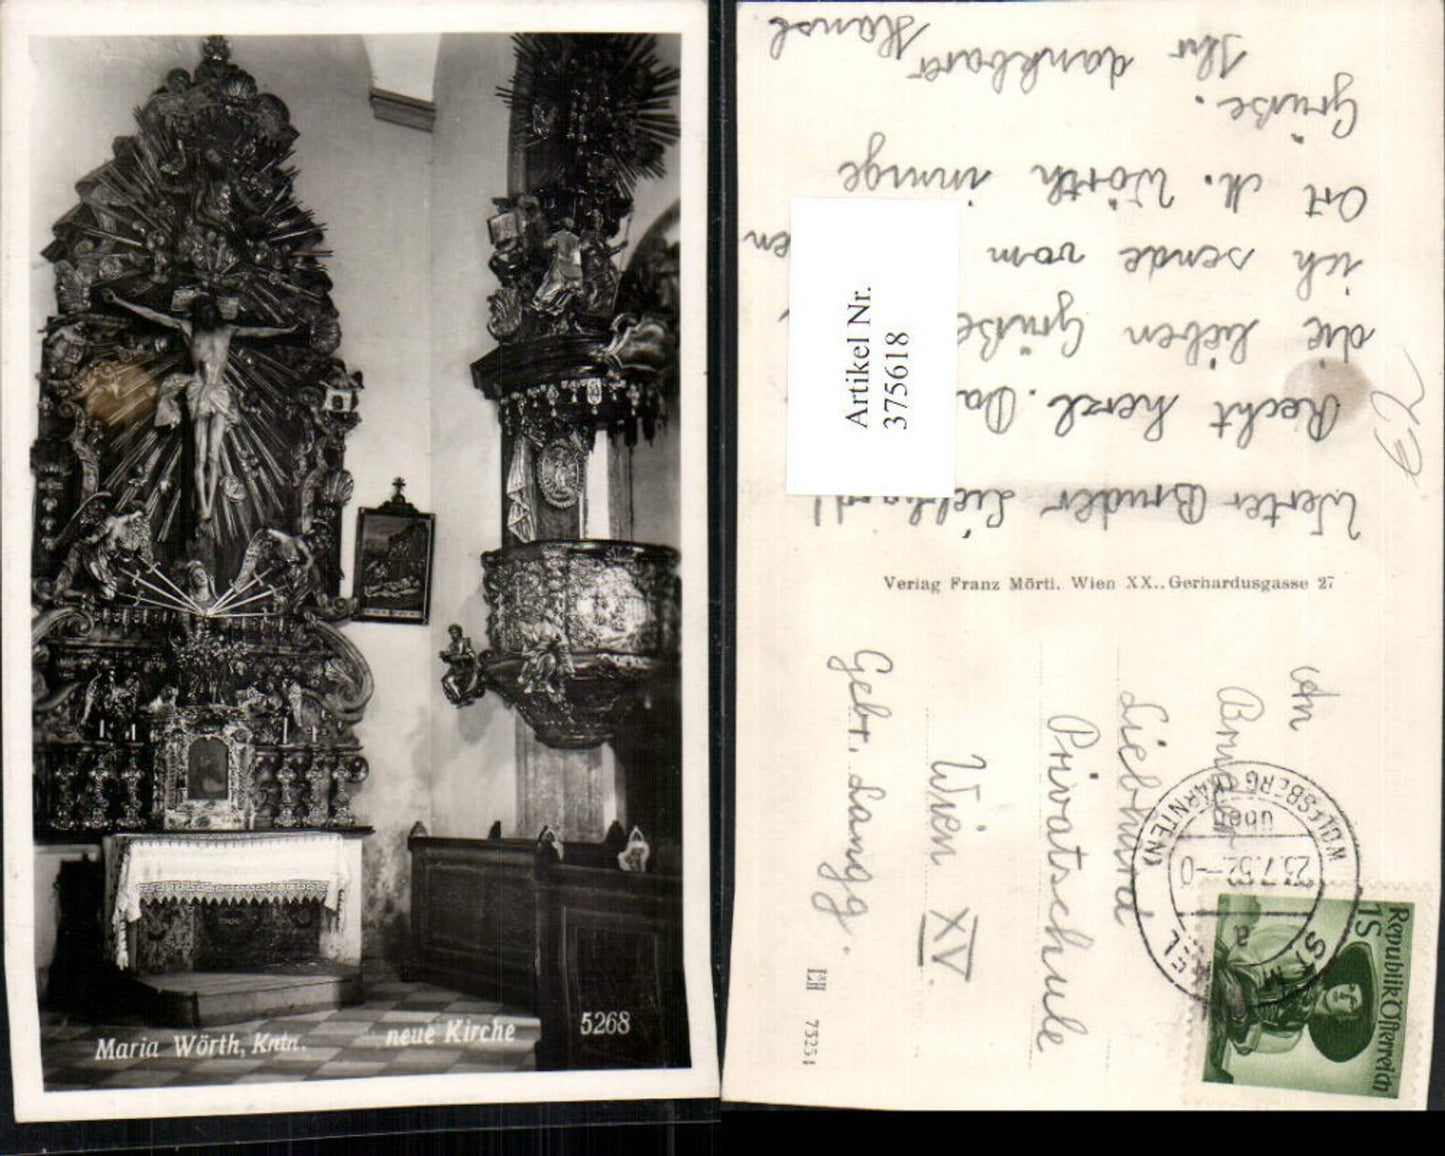 Maria Wörth, Kntn.
neue Kirche
5268
Werter Bruder
Recht herzl. Da
die lieben Grüße
ich sende vom
Ort M. Wörth innige
Grüße.
Ihr dankbarer Hansl
Artikel Nr.
375618
Verlag Franz Mörtl, Wien XX., Gerhardusgasse 27
An
Bruder
Liebhard
Privatschule
Wien XV.
Gebr. Langg.
LH 75251
E2
ST. MICHAEL
23.7.52
a
über
WOLFSBERG (KÄRNTEN)
Republik Österreich
1S